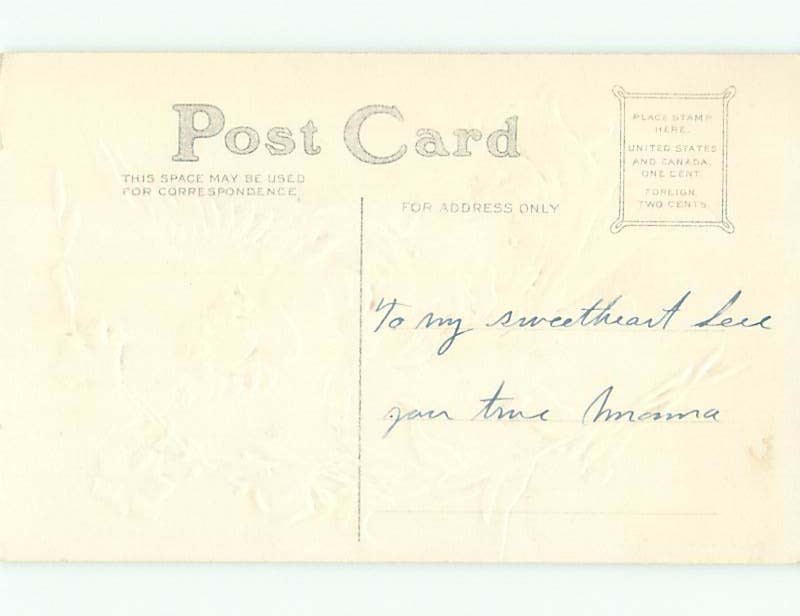 Post Card
THIS SPACE MAY BE USED
FOR CORRESPONDENCE
FOR ADDRESS ONLY
PLACE STAMP
HERE.
UNITED STATES
AND CANADA,
ONE CENT.
FOREIGN,
TWO CENTS.
To my sweetheart
your true Mama